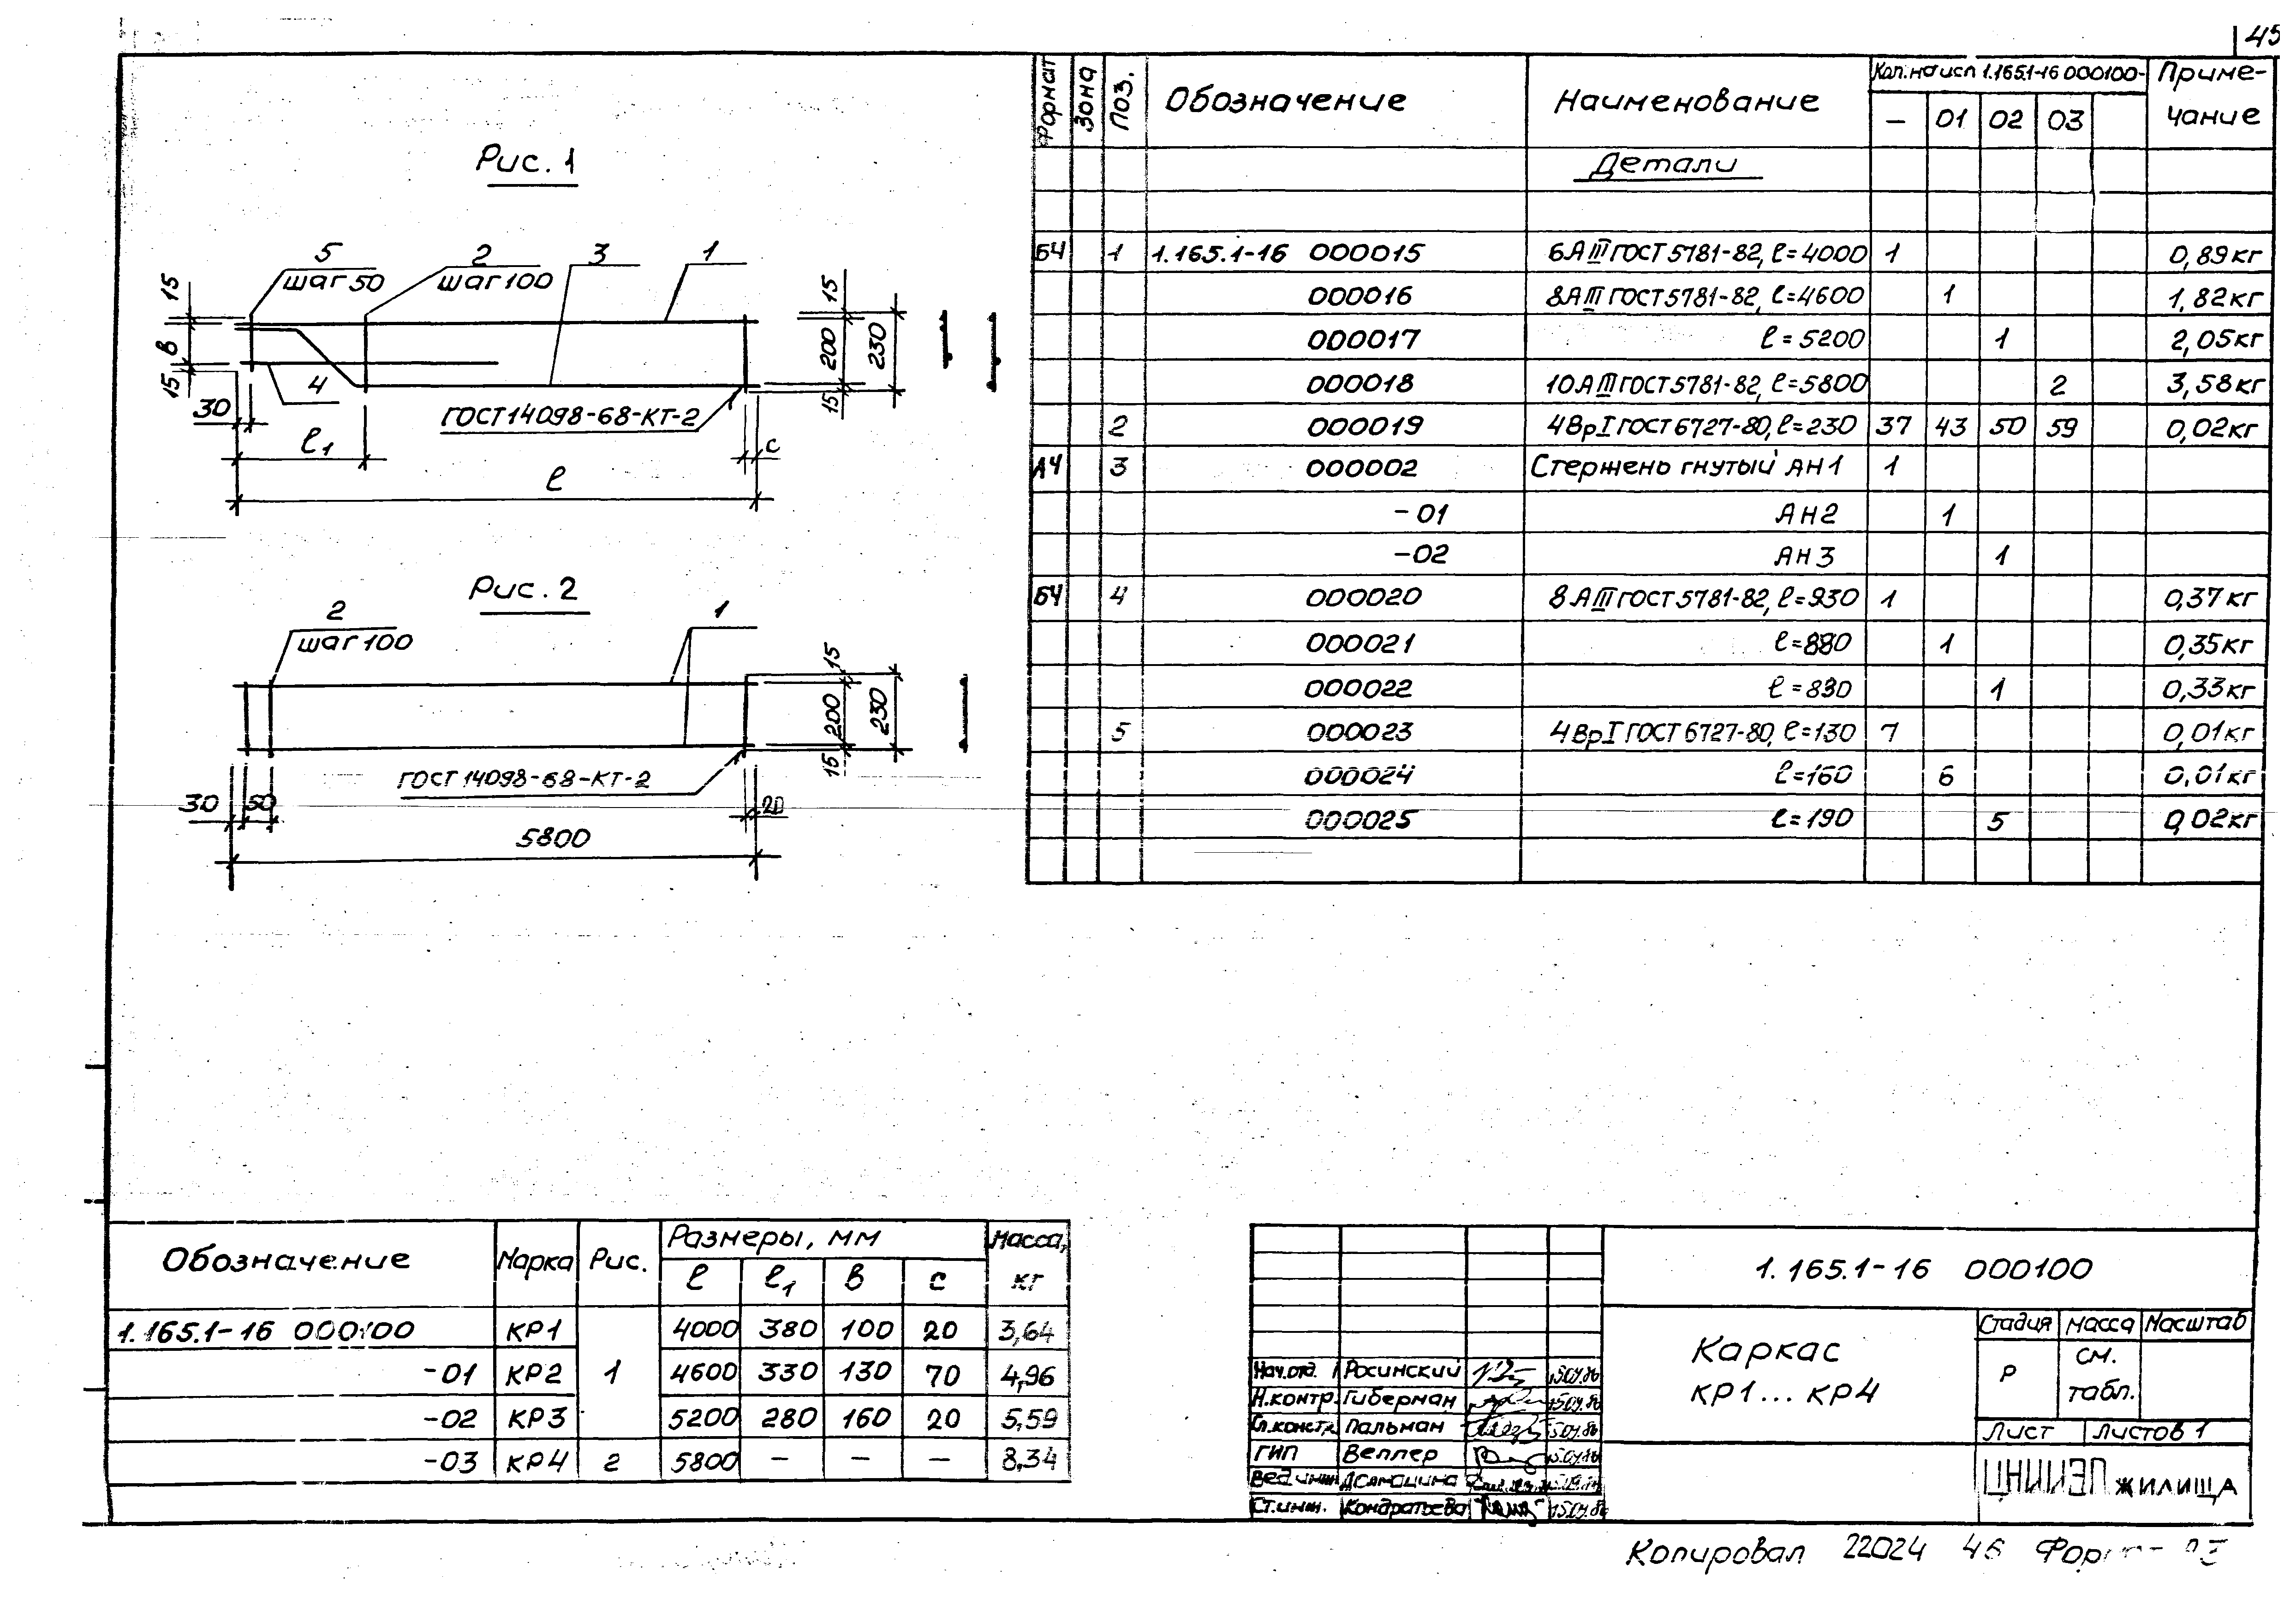 45
Рис. 1
5
шаг 50
2
шаг 100
3
1
15
в
15
4
30
ГОСТ 14098-68-КТ-2
ℓ1
ℓ
с
15
200
230
15
Рис. 2
2
шаг 100
1
15
200
230
15
ГОСТ 14098-68-КТ-2
30
50
20
5800
Формат Зона Поз. Обозначение Наименование Кол. на исп 1.165.1-16 000100- Приме-
чание
— 01 02 03
Детали
БЧ 1 1.165.1-16 000015 6АIII ГОСТ 5781-82, ℓ=4000 1 0,89кг
000016 8АIII ГОСТ 5781-82, ℓ=4600 1 1,82кг
000017 ℓ=5200 1 2,05кг
000018 10АIII ГОСТ 5781-82, ℓ=5800 2 3,58кг
2 000019 4ВрI ГОСТ 6727-80, ℓ=230 37 43 50 59 0,02кг
А4 3 000002 Стержень гнутый АН1 1
-01 АН2 1
-02 АН3 1
БЧ 4 000020 8АIII ГОСТ 5781-82, ℓ=930 1 0,37кг
000021 ℓ=880 1 0,35кг
000022 ℓ=830 1 0,33кг
5 000023 4ВрI ГОСТ 6727-80, ℓ=130 7 0,01кг
000024 ℓ=160 6 0,01кг
000025 ℓ=190 5 0,02кг
Обозначение Марка Рис. Размеры, мм Масса,
кг
ℓ ℓ1 в с
1.165.1-16 000100 КР1 4000 380 100 20 3,64
-01 КР2 1 4600 330 130 70 4,96
-02 КР3 5200 280 160 20 5,59
-03 КР4 2 5800 — — — 8,34
1.165.1-16 000100
Каркас
КР1... КР4
Стадия Масса Масштаб
Р см.
табл.
Лист Листов 1
ЦНИИЭП жилища
Нач.отд. Росинский 15.09.86
Н.контр. Гиберман 15.09.86
Гл.констр. Пальман 15.09.86
ГИП Веллер 15.09.86
Вед инж.
Ст.инж. Кондратьева 15.09.86
Копировал 22024 46